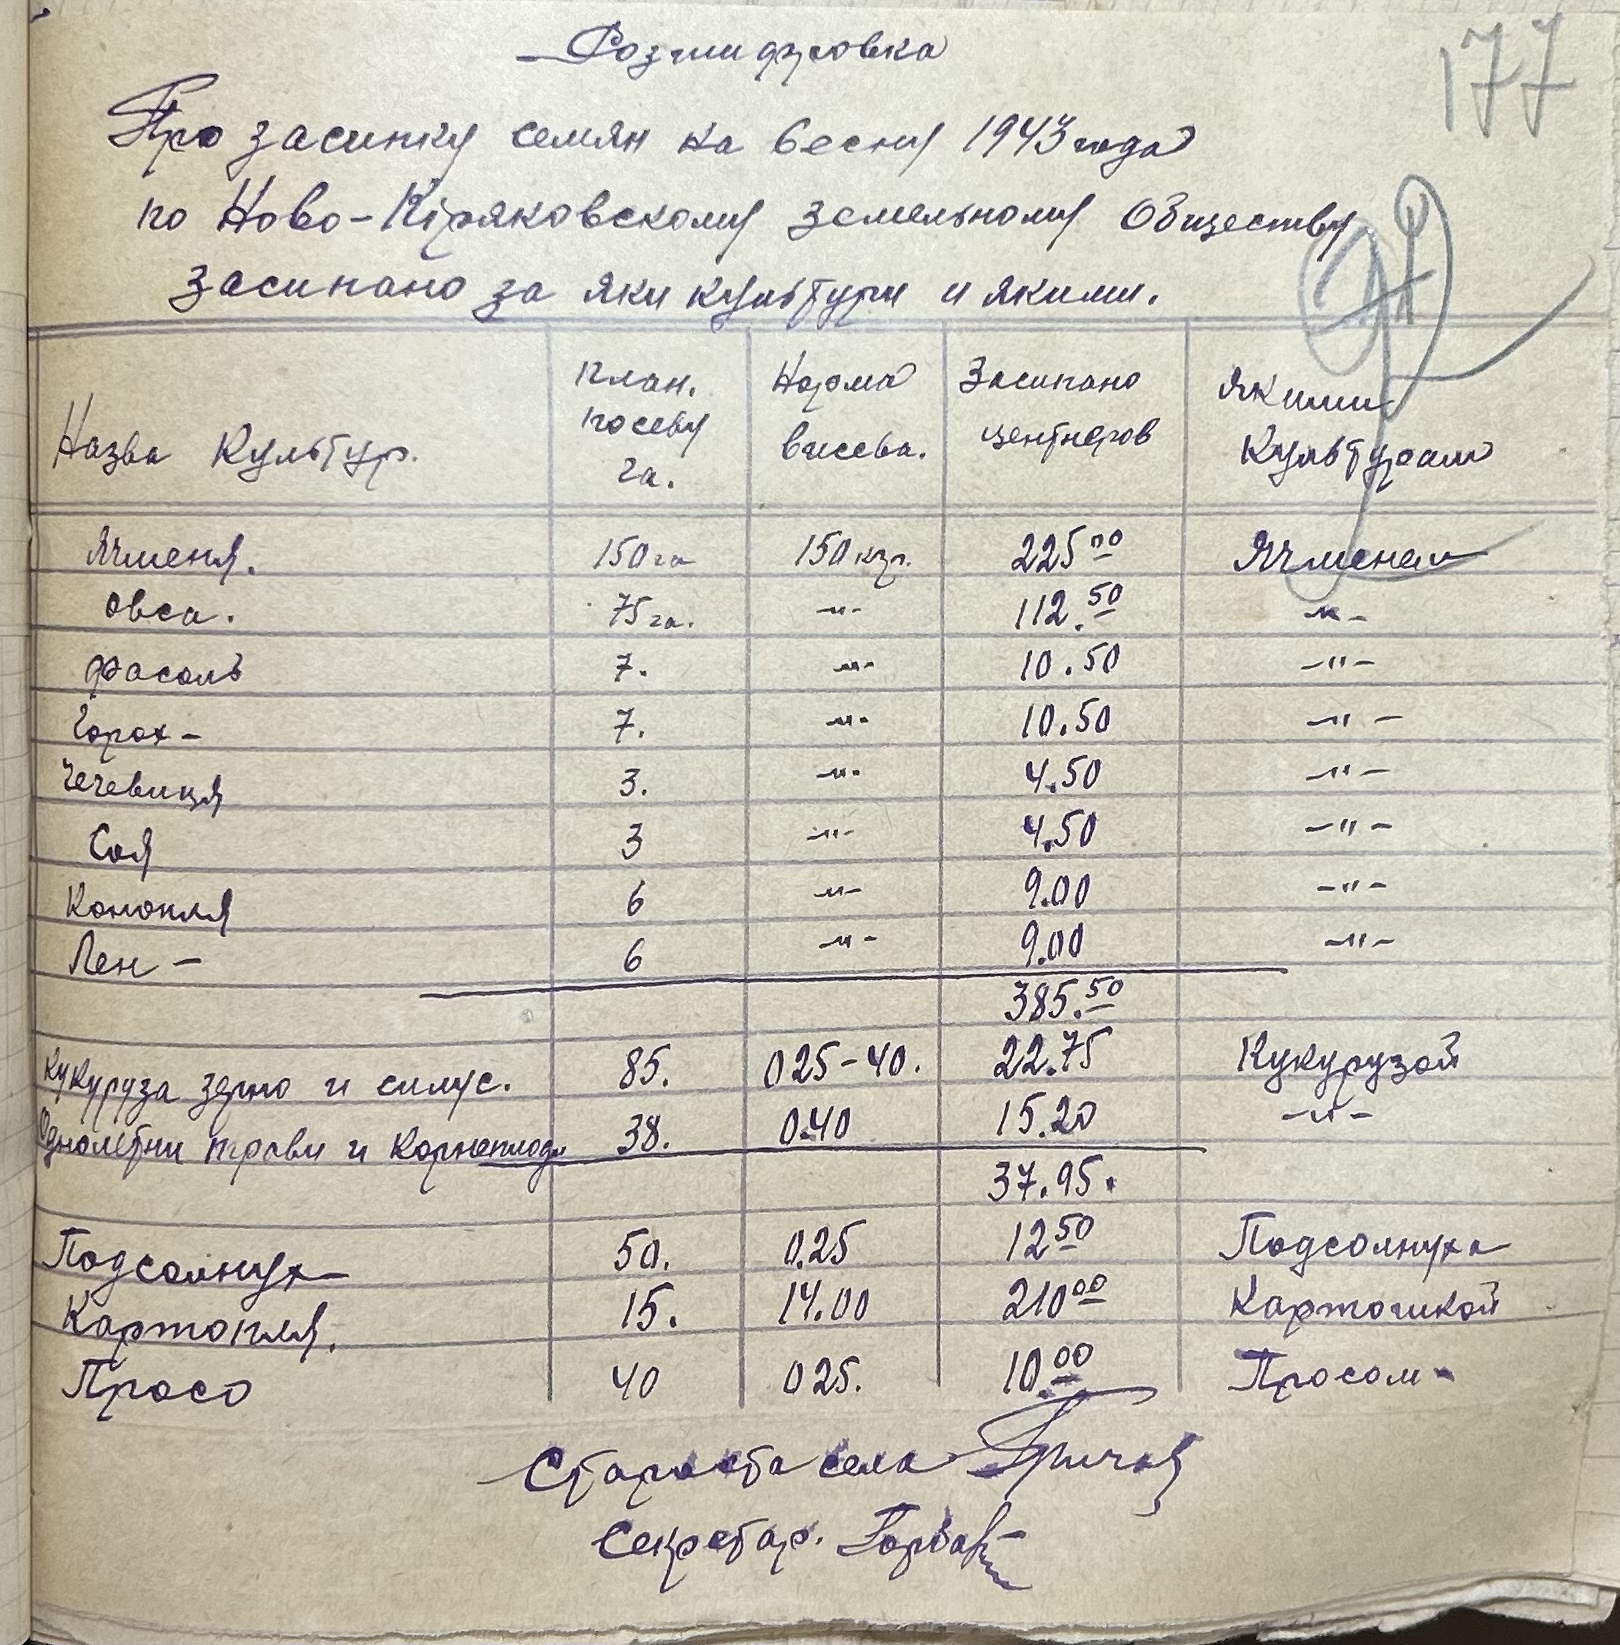 177
Розшифровка
Про засипку семян на весну 1943 года
по Ново-Кіряковскому земельному Обществу
засипано за яки культури и якими.
Назва Культур. | План. посеву га. | Норма висева. | Засипано центнеров | Якими Культурами
Ячменя. 150 га 150 кгр. 225 00 Ячменем
Овса. 75 га. -"- 112.50 -"-
фасоль 7. -"- 10.50 -"-
Горох - 7. -"- 10.50 -"-
Чечевиця 3. -"- 4.50 -"-
Соя 3 -"- 4.50 -"-
Конопля 6 -"- 9.00 -"-
Лен - 6 -"- 9.00 -"-
385.50
Кукуруза зерно и силус. 85. 025-40. 22.75 Кукурузой
Однолетни трави и Корнеплоди 38. 0.40 15.20 -"-
37.95.
Подсолнух 50. 0.25 12 50 Подсолнуха
Картопля. 15. 14.00 210 00 Картошкой
Просо 40 025. 10.00 Просом-
Староста села
Секретар.